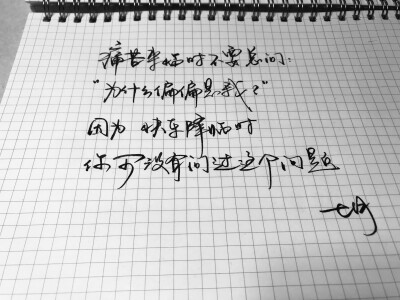 痛苦来临时不要总问：
“为什么偏偏是我？”
因为 快乐降临时
你可没有问过这个问题